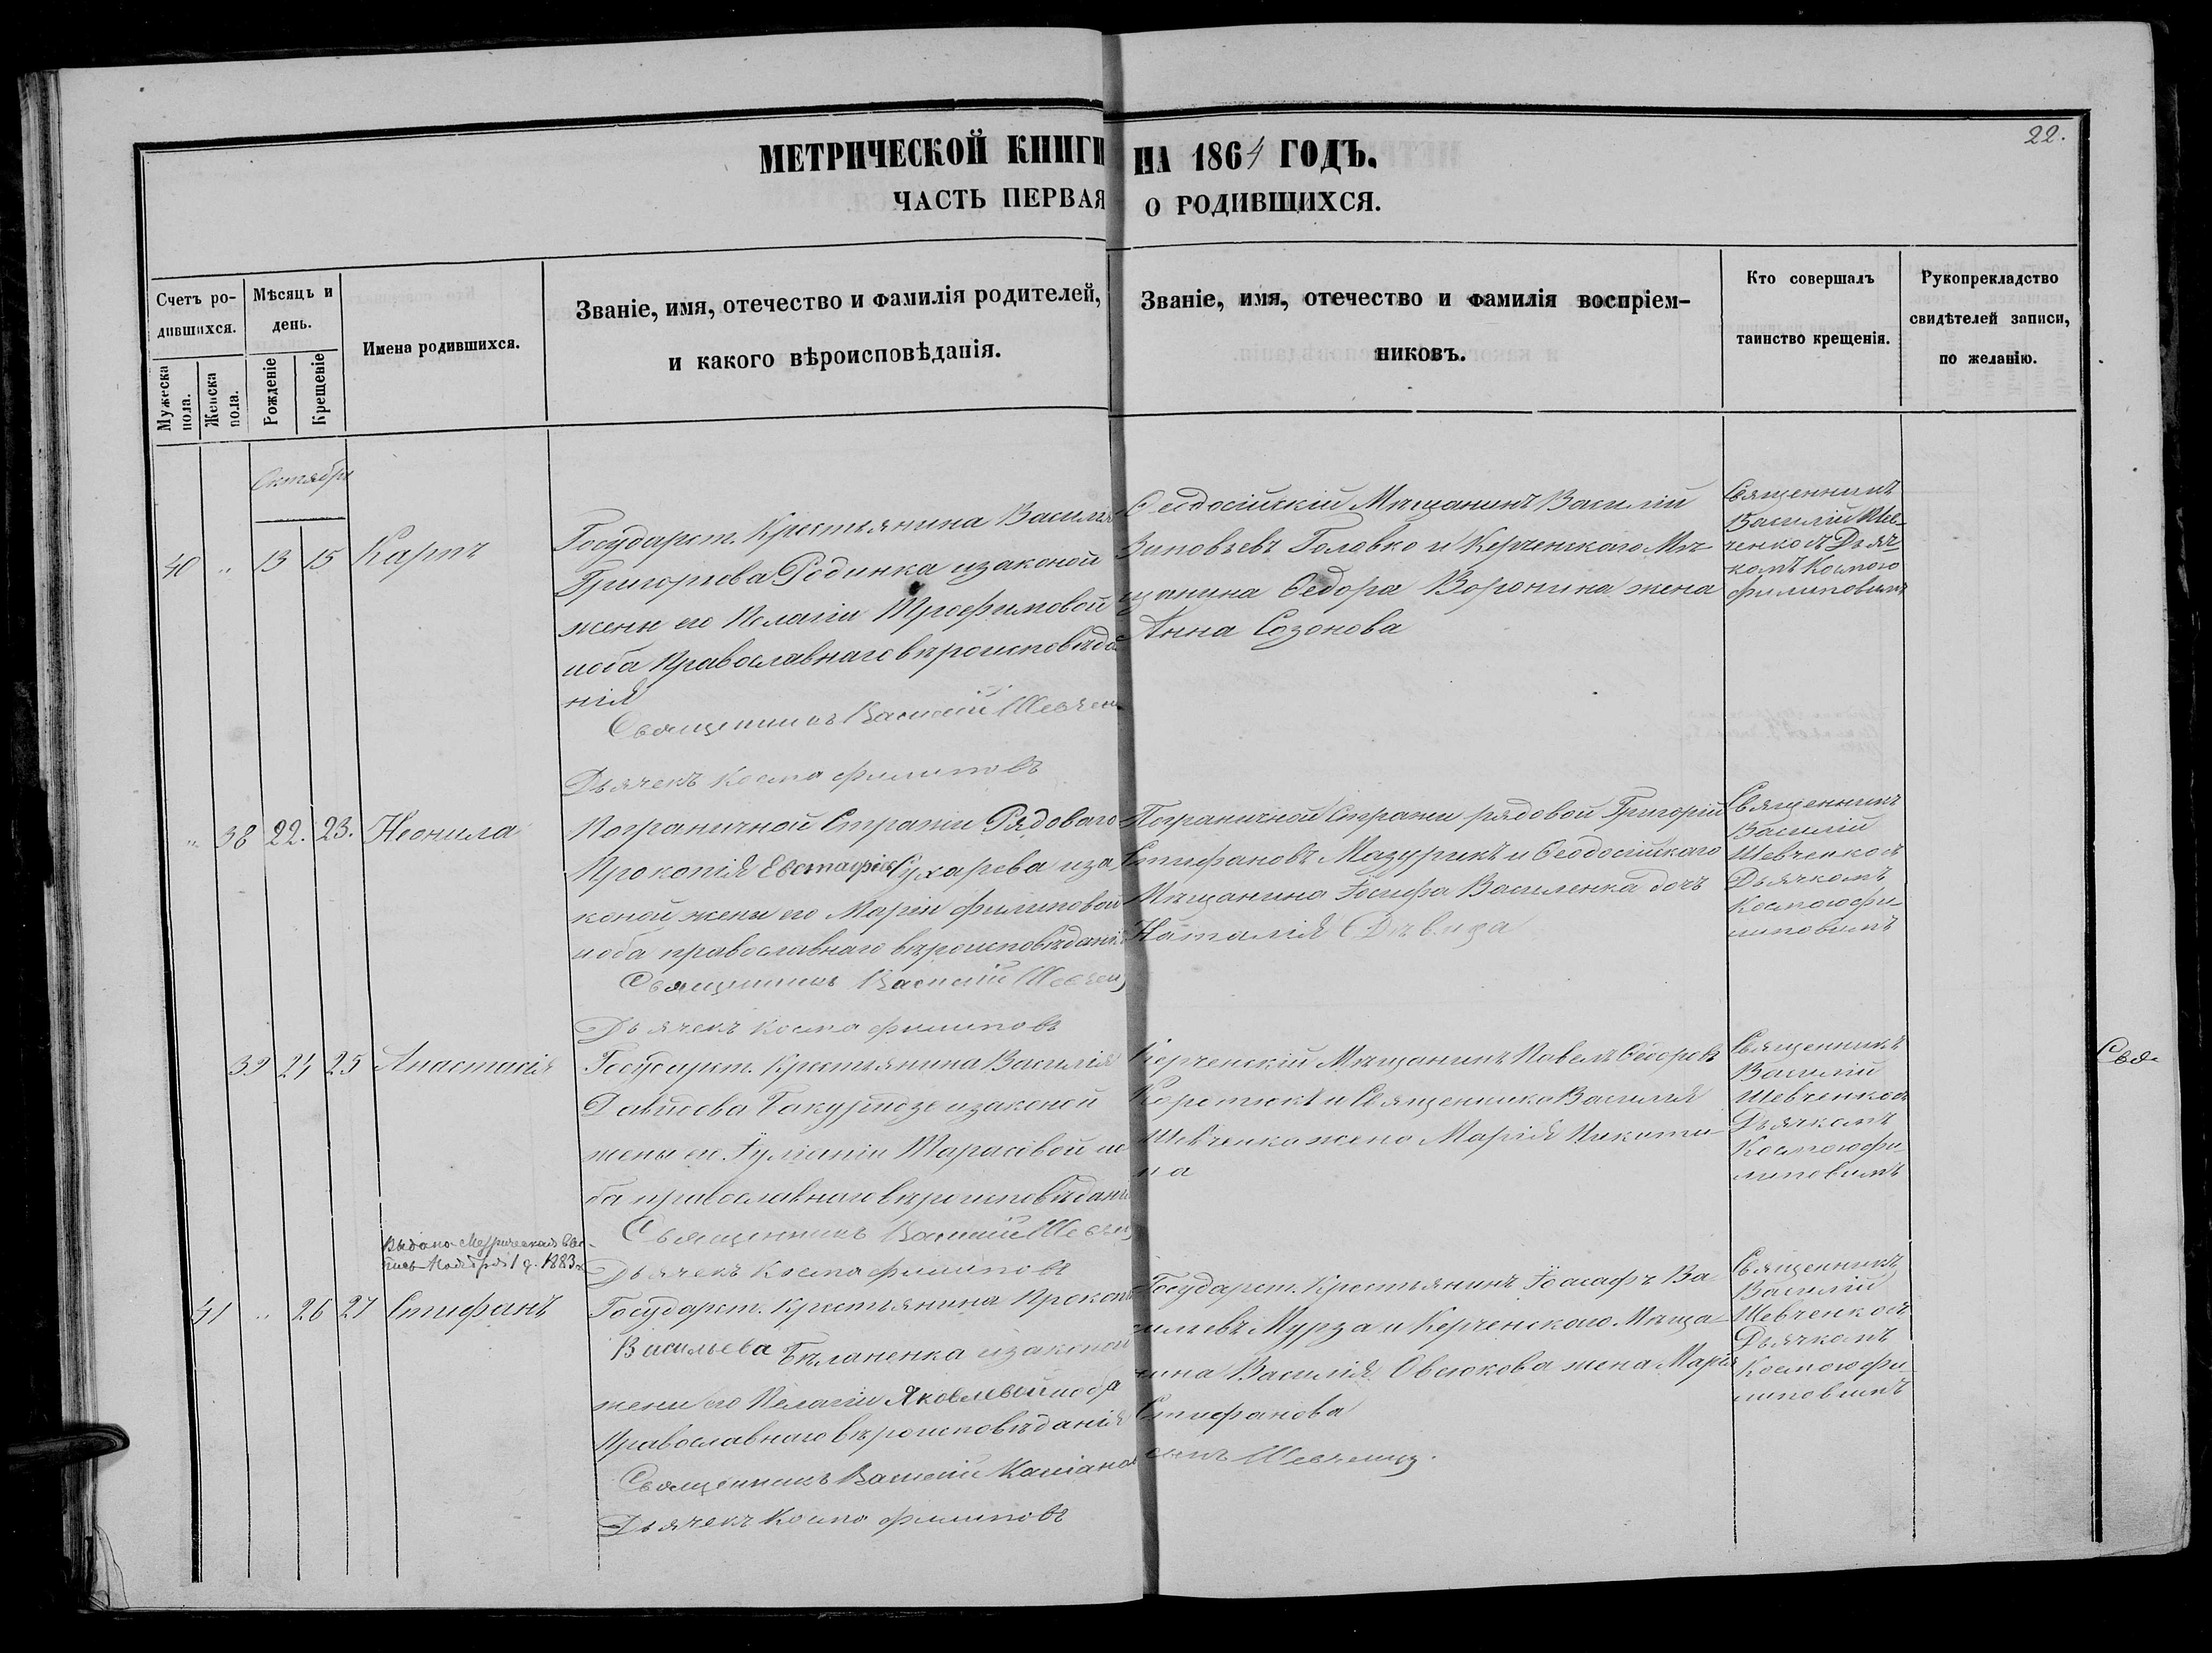 22.
МЕТРИЧЕСКОЙ КНИГИ НА 1864 ГОДЪ.
ЧАСТЬ ПЕРВАЯ О РОДИВШИХСЯ.
Счетъ ро-
дившихся.
Мужеска
пола.
Женска
пола.
Мѣсяцъ и
день.
Рожденіе
Крещеніе
Имена родившихся.
Званіе, имя, отечество и фамилія родителей,
и какого вѣроисповѣданія.
Званіе, имя, отечество и фамилія воспріем-
никовъ.
Кто совершалъ
таинство крещенія.
Рукоприкладство
свидѣтелей записи,
по желанію.
Октябрь
40 „ 13 15 Карпъ
Государст. Крестьянина Василія
Григорьева Родинка изаконой
жены его Пелагіи Трофимовой
иоба Православнаго вѣроисповѣда
нія
Священникъ Василій Шевчен
Дьячекъ Косма Филиповъ
Феодосійскій Мѣщанинъ Василій
Зиновьевъ Головко и Керченскаго Мѣ-
щанина Федора Воронина жена
Анна Созонова
Священникъ
Василій Шев-
ченко съ Дьяч-
комъ Космою
Филиповымъ
„ 38 22. 23. Неонила
Пограничной Стражи Рядоваго
Прокопія Евстафіева Сухарева иза
коной жены его Маріи Филиповой
иоба православнаго вѣроисповѣданія
Священникъ Василій Шевчен
Дьячекъ Косма Филиповъ
Пограничной Стражи рядовой Григорій
Стифановъ Мазурикъ и Феодосійскаго
Мѣщанина Іосифа Василенка дочь
Наталія Дѣвица
Священникъ
Василій
Шевченко съ
Дьячкомъ
Космою Фи-
липовымъ
39 24 25 Анастасія
Государст. Крестьянина Василія
Давидова изаконой
жены его Іуліаніи Тарасовой ио
ба православнаго вѣроисповѣданія
Священникъ Василій Шевчен
Дьячекъ Косма Филиповъ
Керченскій Мѣщанинъ Павелъ Федоровъ
Коротюкъ и Священника Василія
Шевченка жена Марія Никити-
на
Священникъ
Василій
Шевченко съ
Дьячкомъ
Космою Фи-
липовымъ
Свя-
Выдана Метрическая Вы-
пись Ноября 1 д. 1883 г.
41 „ 26 27 Стифанъ
Государст. Крестьянина Прокопія
Васильева Бѣланенка изаконой
жены его Пелагіи Яковлевой иоба
Православнаго вѣроисповѣданія
Священникъ Василій Касіановъ сынъ Шевченко.
Дьячекъ Косма Филиповъ
Государст. Крестьянинъ Іоасафъ Ва-
сильевъ Мурза и Керченскаго Мѣща-
нина Василія Овсюкова жена Марія
Стифанова
Священникъ
Василій
Шевченко съ
Дьячкомъ
Космою Фи-
липовымъ